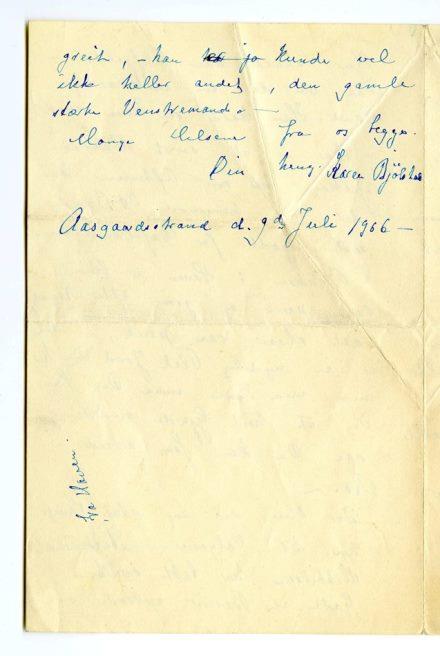 greit, – han jo kunde vel
ikke heller andet, den gamle
stærke Venstremand. –
Mange hilsener fra os begge.
Din heng. Karen Bjölstad
Aasgaardsstrand d. 9de Juli 1906 –
fra Karen.